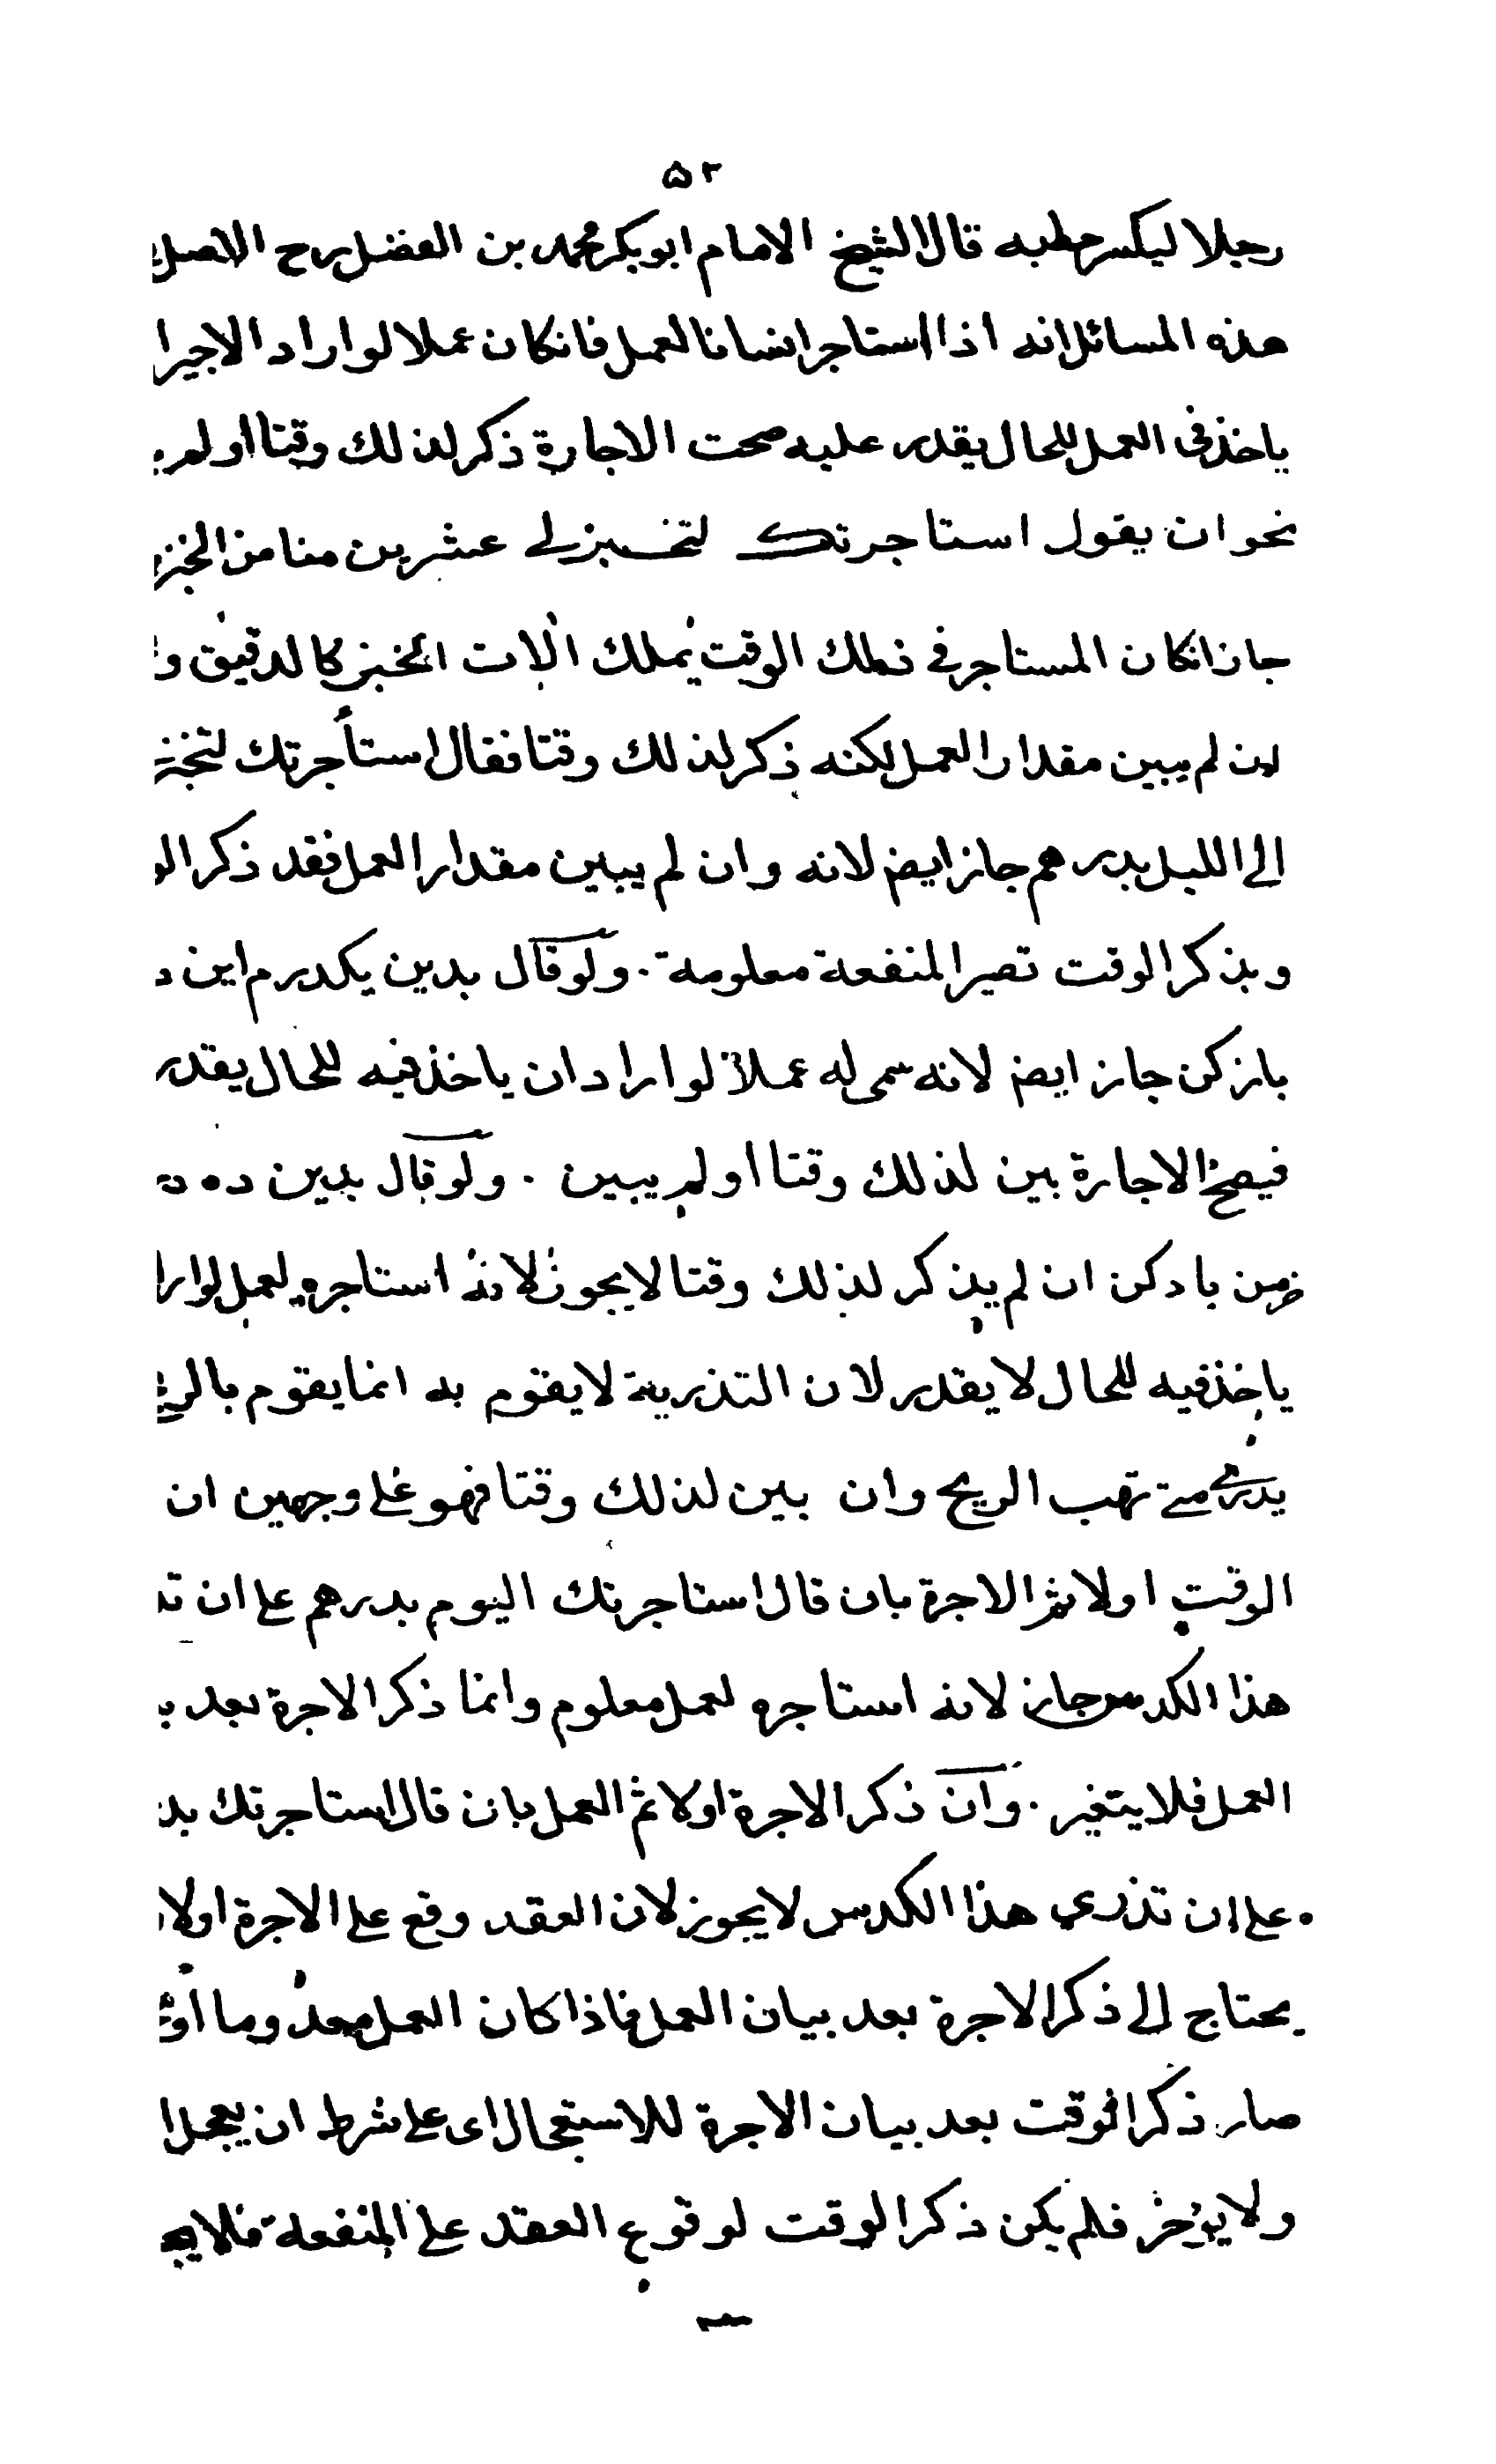 ٥٢
رجلا ليكسر حطبه قال الشيخ الامام ابو بكر محمد بن الفضل رح الاصل
هذه المسائل انه اذا استاجر انسانا لعمل فانكان عملا لو اراد الاجير ا
ياخذ فى العمل للحال يقدر عليه صحت الاجارة ذكر لذلك وقتا او لم
نحو ان يقول استاجرتك لتخبز لى عشرين منا من الخبز
جاز انكان المستاجر فى ذلك الوقت يملك الات الخبز كالدقيق و
ان لم يبين مقدار العمل لكنه ذكر لذلك وقتا فقال استأجرتك لتخبز
الى الليل بدرهم جاز ايض لانه وان لم يبين مقدار العمل فقد ذكر الو
وبذكر الوقت تصير المنفعة معلومة . ولو قال بدين يكدرم اين د
باز كن جاز ايض لانه سمى له عملا لو اراد ان ياخذ فيه للحال يقدر
فيصح الاجارة بين لذلك وقتا او لم يبين . ولو قال بدين ده د
خرمن باد كن ان لم يذكر لذلك وقتا لا يجوز لانه استاجره لعمل لو ارا
ياخذ فيه للحال لا يقدر لان التذرية لا يقوم به انما يقوم بالري
يدرى متى تهب الريح وان بين لذلك وقتا فهو على وجهين ان
الوقت اولا ثم الاجرة بان قال استاجرتك اليوم بدرهم على ان تد
هذا الكدس جاز لانه استاجره لعمل معلوم وانما ذكر الاجرة بعد ب
العمل فلا يتغير . وان ذكر الاجرة اولا ثم العمل بان قال استاجرتك بد
على ان تذرى هذا الكدس لا يجوز لان العقد وقع على الاجرة اولا
يحتاج الى ذكر الاجرة بعد بيان العمل فاذا كان العمل معدوما او
صار ذكر الوقت بعد بيان الاجرة للاستعجال اى على شرط ان يعجل ا
ولا يؤخر فلم يكن ذكر الوقت لوقوع العقد على المنفعة فلا يج